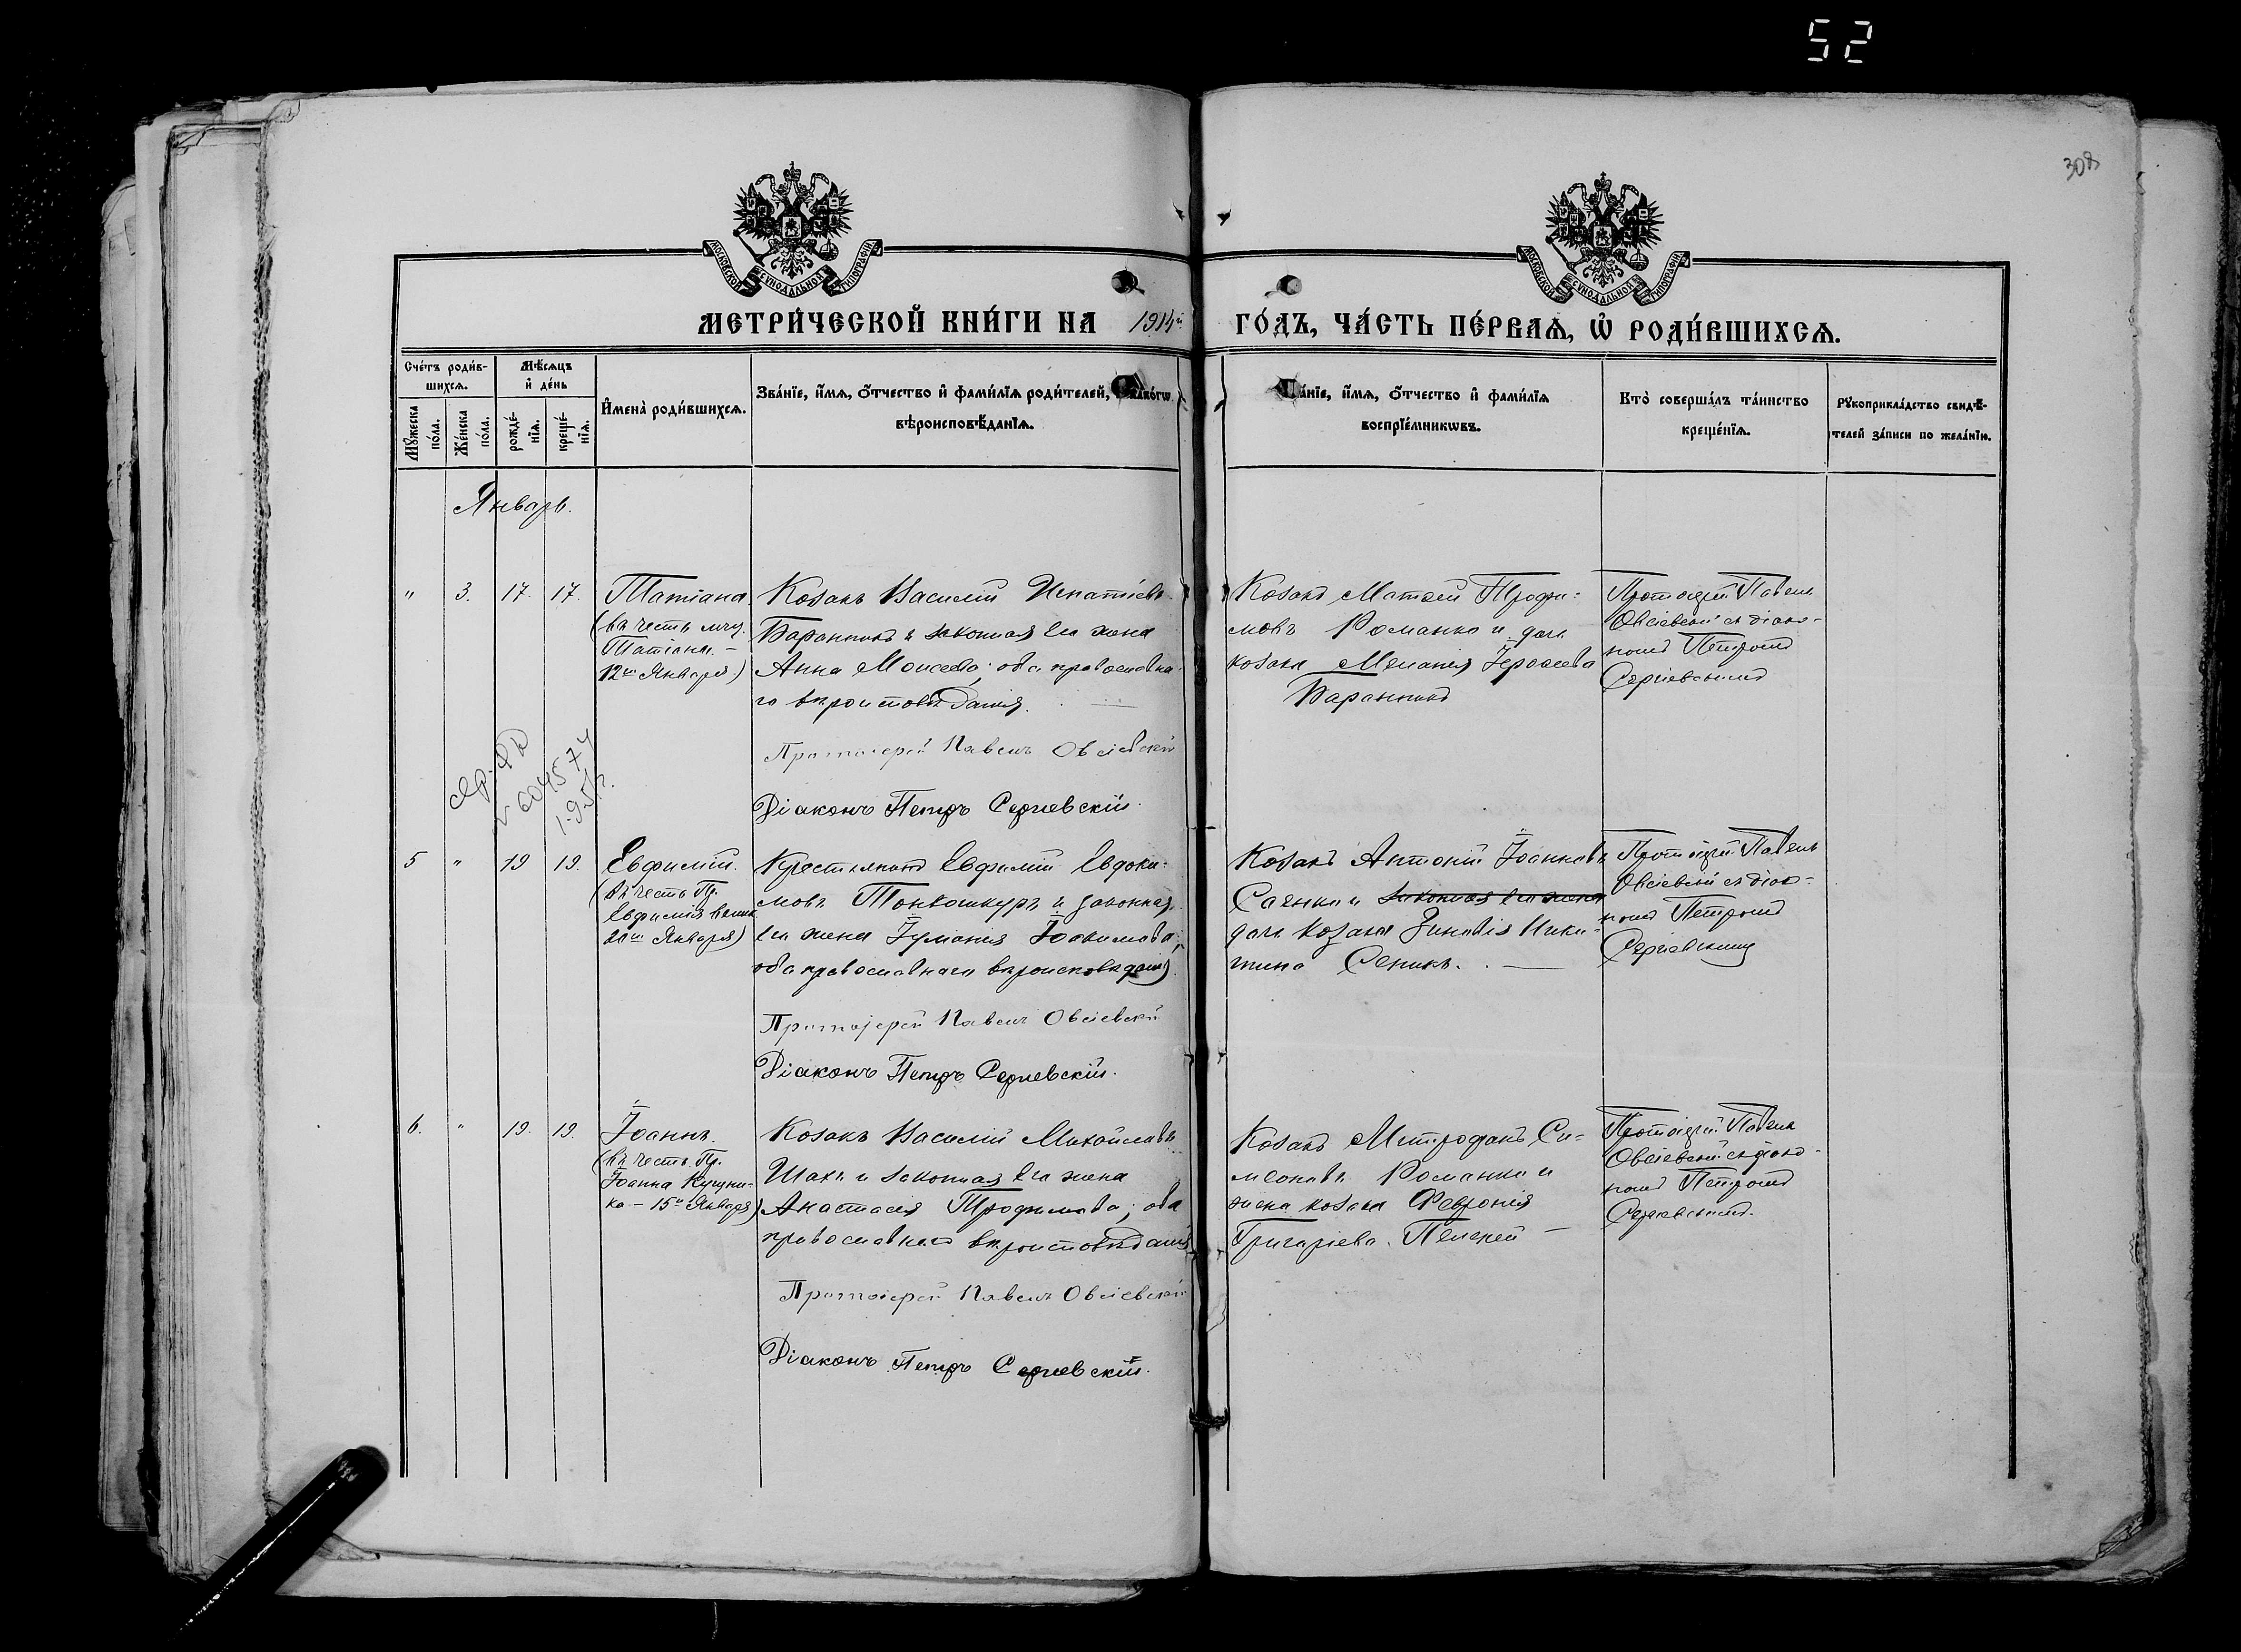 52
308
МОСКОВСКОЙ СУНОДАЛЬНОЙ ТИПОГРАФІИ
МОСКОВСКОЙ СУНОДАЛЬНОЙ ТИПОГРАФІИ
МЕТРИ́ЧЕСКОЙ КНИ́ГИ НА 1914й ГО́ДЪ, ЧА́СТЬ ПЕ́РВАѦ, Ѡ҆ РОДИ́ВШИХСѦ.
Сче́тъ роди́в-
шихсѧ.
Мѣ́сѧцъ
и҆ де́нь
Мꙋ́жеска
по́ла.
Же́нска
по́ла.
рожде́-
нїѧ.
креще́-
нїѧ.
И҆мена̀ роди́вшихсѧ.
Зва́нїе, и҆́мѧ, о҆́тчество и҆ фами́лїѧ роди́телей,
вѣроисповѣ́данїѧ.
и҆́мѧ, о҆́тчество и҆ фами́лїѧ
воспрїе́мникѡвъ.
Кто̀ соверша́лъ та́инство
креще́нїѧ.
Рꙋкоприкла́дство свидѣ́-
телей за́писи по жела́нїю.
Январь.
" 3. 17. 17.
Татіана
(въ честь мчц.
Татіаны. –
12го Января.)
Козакъ Василій Игнатіевъ
Баранникъ и законная его жена
Анна Моисеева; оба православна-
го вѣроисповѣданія.
Протоіерей Павелъ Овсіевскій
Діаконъ Петръ Сергіевскій.
Козакъ Матѳей Трофи-
мовъ Романко и дочь
козака Меланія
Баранникъ
Протоіерей Павелъ
Овсіевскій съ діако-
номъ Петромъ
Сергіевскимъ
5 " 19 19.
Евфимій.
(въ честь Пр.
Евфимія велик.
20го Января)
Крестьянинъ Евфимій Евдоки-
мовъ Тонкошкуръ и законная
его жена Іуліанія
оба православнаго вѣроисповѣданія.
Протоіерей Павелъ Овсіевскій
Діаконъ Петръ Сергіевскій.
Козакъ Антоній Іоанновъ
Саенко и законная его жена
дочь козака Зиновія Ники-
тина Сеникъ.
Протоіерей Павелъ
Овсіевскій съ діако-
номъ Петромъ
Сергіевскимъ
6. " 19. 19.
Іоаннъ.
(въ честь Пр.
Іоанна Кущни-
ка – 15го Января)
Козакъ Василій Михайловъ
Шахъ и законная его жена
Анастасія Трофимова; оба
православнаго вѣроисповѣданія
Протоіерей Павелъ Овсіевскій
Діаконъ Петръ Сергіевскій.
Козакъ Митрофанъ Си-
меоновъ Романко и
жена козака Февронія
Григоріева
Протоіерей Павелъ
Овсіевскій съ діако-
номъ Петромъ
Сергіевскимъ.